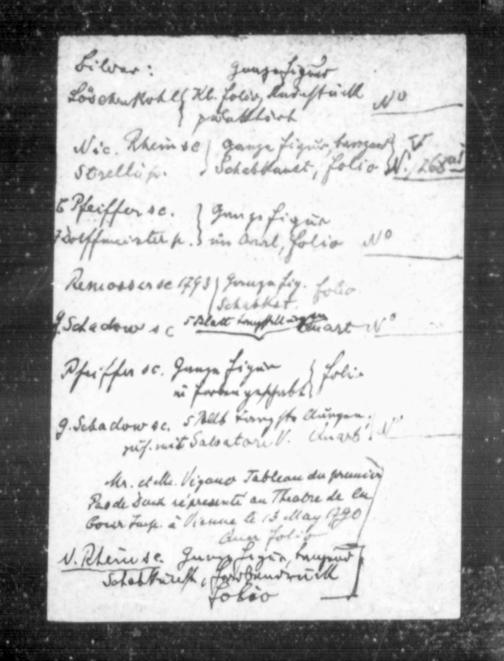 Bilder: ganze Figur
Löschenkohl { Kl. folio, Kniestück No
punktiert
Nic. Rhein sc } ganze Figur, tanzend } V
Schabkunst, folio N. 268
C Pfeiffer sc. } Ganze Figur
p. } im Oval, folio No
sc 1793 } Ganze Fig. folio
Schabkst.
G. Schadow sc 5 Blatt Quart No
Pfeiffer sc. Ganze Figur } folio
in Farben geschabt
G. Schadow sc. 5 Blatt
mit Salvatore V. Quart N
Mr. et Me. Vigano Tableau du premier
Pas de Deux représenté au Theatre de la
Cour Imp. à Vienne le 13 May 1790
Quer folio
N. Rhein sc. Ganze Figur, tanzend
Schabkunst, Farbendruck
folio